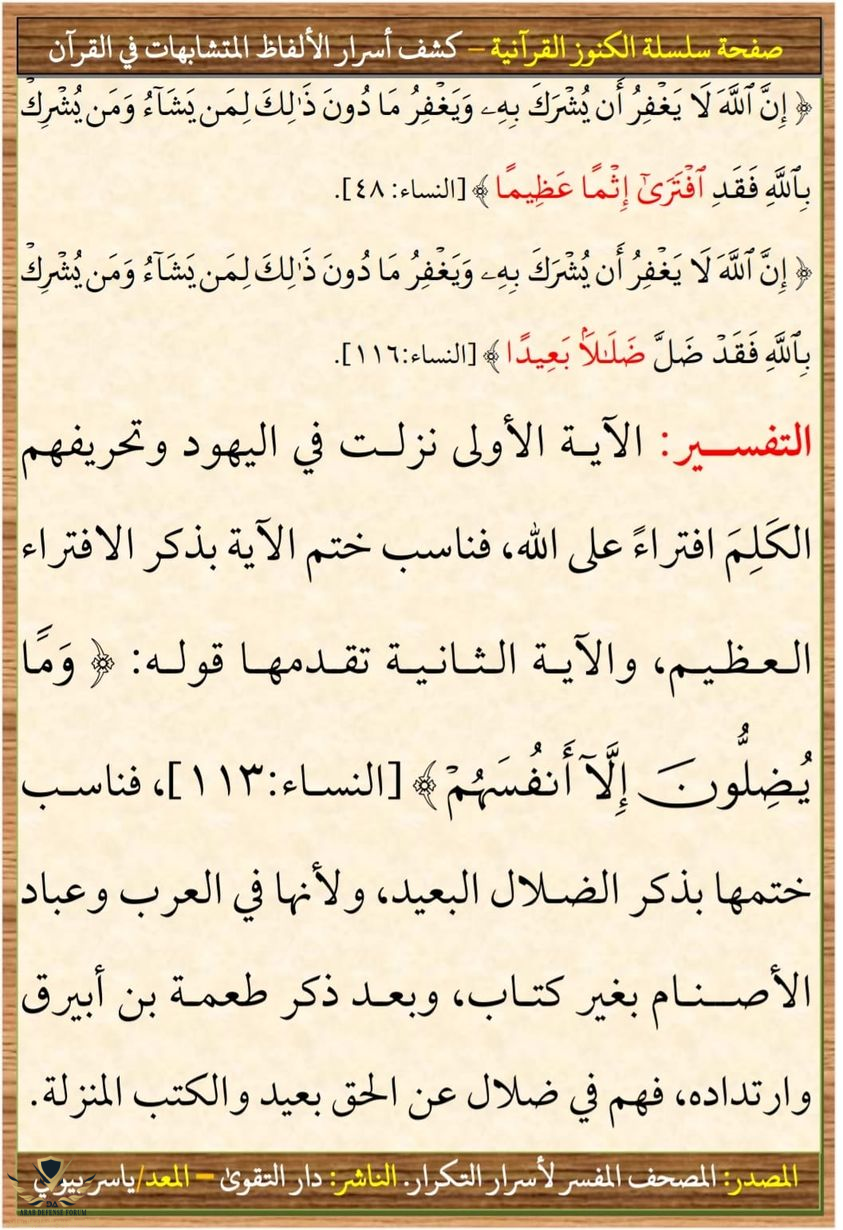 صفحة سلسلة الكنوز القرآنية – كشف أسرار الألفاظ المتشابهات في القرآن
﴿ إِنَّ ٱللَّهَ لَا يَغْفِرُ أَن يُشْرَكَ بِهِۦ وَيَغْفِرُ مَا دُونَ ذَٰلِكَ لِمَن يَشَآءُ وَمَن يُشْرِكْ
بِٱللَّهِ فَقَدِ ٱفْتَرَىٰٓ إِثْمًا عَظِيمًا ﴾ [النساء: ٤٨].
﴿ إِنَّ ٱللَّهَ لَا يَغْفِرُ أَن يُشْرَكَ بِهِۦ وَيَغْفِرُ مَا دُونَ ذَٰلِكَ لِمَن يَشَآءُ وَمَن يُشْرِكْ
بِٱللَّهِ فَقَدْ ضَلَّ ضَلَٰلًۢا بَعِيدًا ﴾ [النساء:١١٦].
التفســـير: الآية الأولى نزلت في اليهود وتحريفهم
الكَلِمَ افتراءً على الله، فناسب ختم الآية بذكر الافتراء
العظيم، والآية الثانية تقدمها قوله: ﴿ وَمَا
يُضِلُّونَ إِلَّآ أَنفُسَهُمْ ﴾ [النساء:١١٣]، فناسب
ختمها بذكر الضلال البعيد، ولأنها في العرب وعباد
الأصنام بغير كتاب، وبعد ذكر طعمة بن أبيرق
وارتداده، فهم في ضلال عن الحق بعيد والكتب المنزلة.
المصدر: المصحف المفسر لأسرار التكرار. الناشر: دار التقوىٰ – المعد/ياسر بيومي
ARAB DEFENSE FORUM